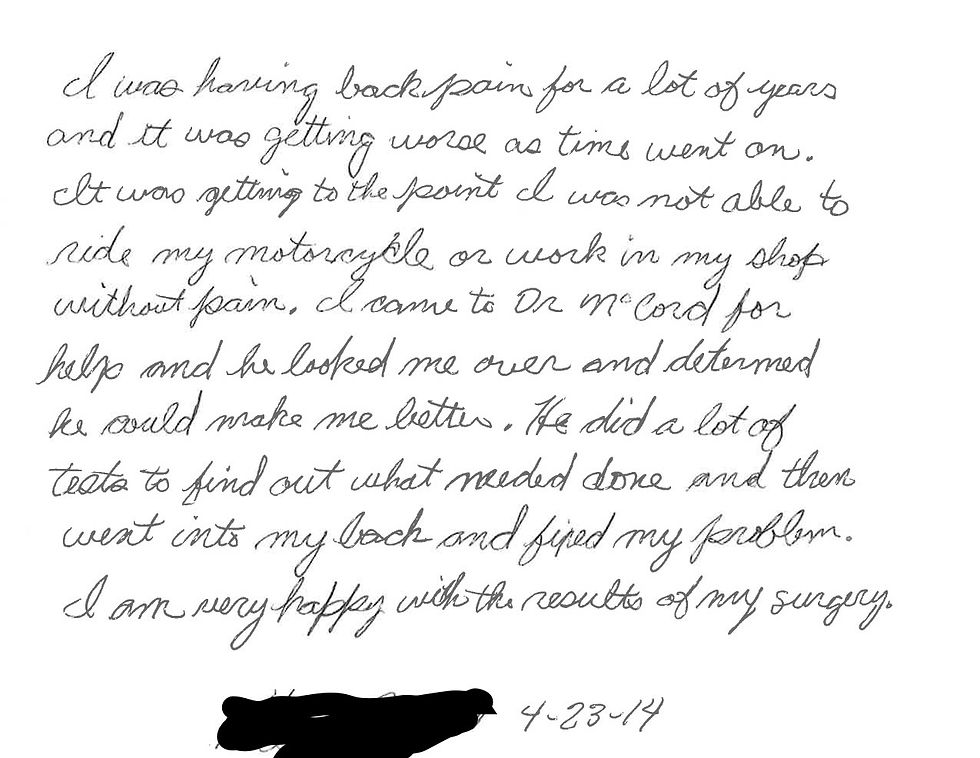 I was having back pain for a lot of years
and it was getting worse as time went on.
It was getting to the point I was not able to
ride my motorcykle or work in my shop
without pain. I came to Dr McCord for
help and he looked me over and determed
he could make me better. He did a lot of
tests to find out what needed done and then
went into my back and fixed my problem.
I am very happy with the results of my surgery.
4-23-14